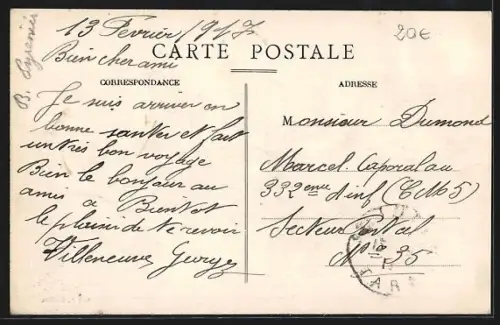 13 Février 1917
20€
B. Pyrenées
Bien cher ami
CARTE POSTALE
CORRESPONDANCE
ADRESSE
Je suis arriver en
bonne santer et fait
un trés bon voyage
Bien le bonjour au
amis a Bientot
le plaisir de te revoir
Villeneuve
Monsieur Dumond
Marcel. Caporal au
332eme d'inf (CM5)
Secteur Postal
No 35